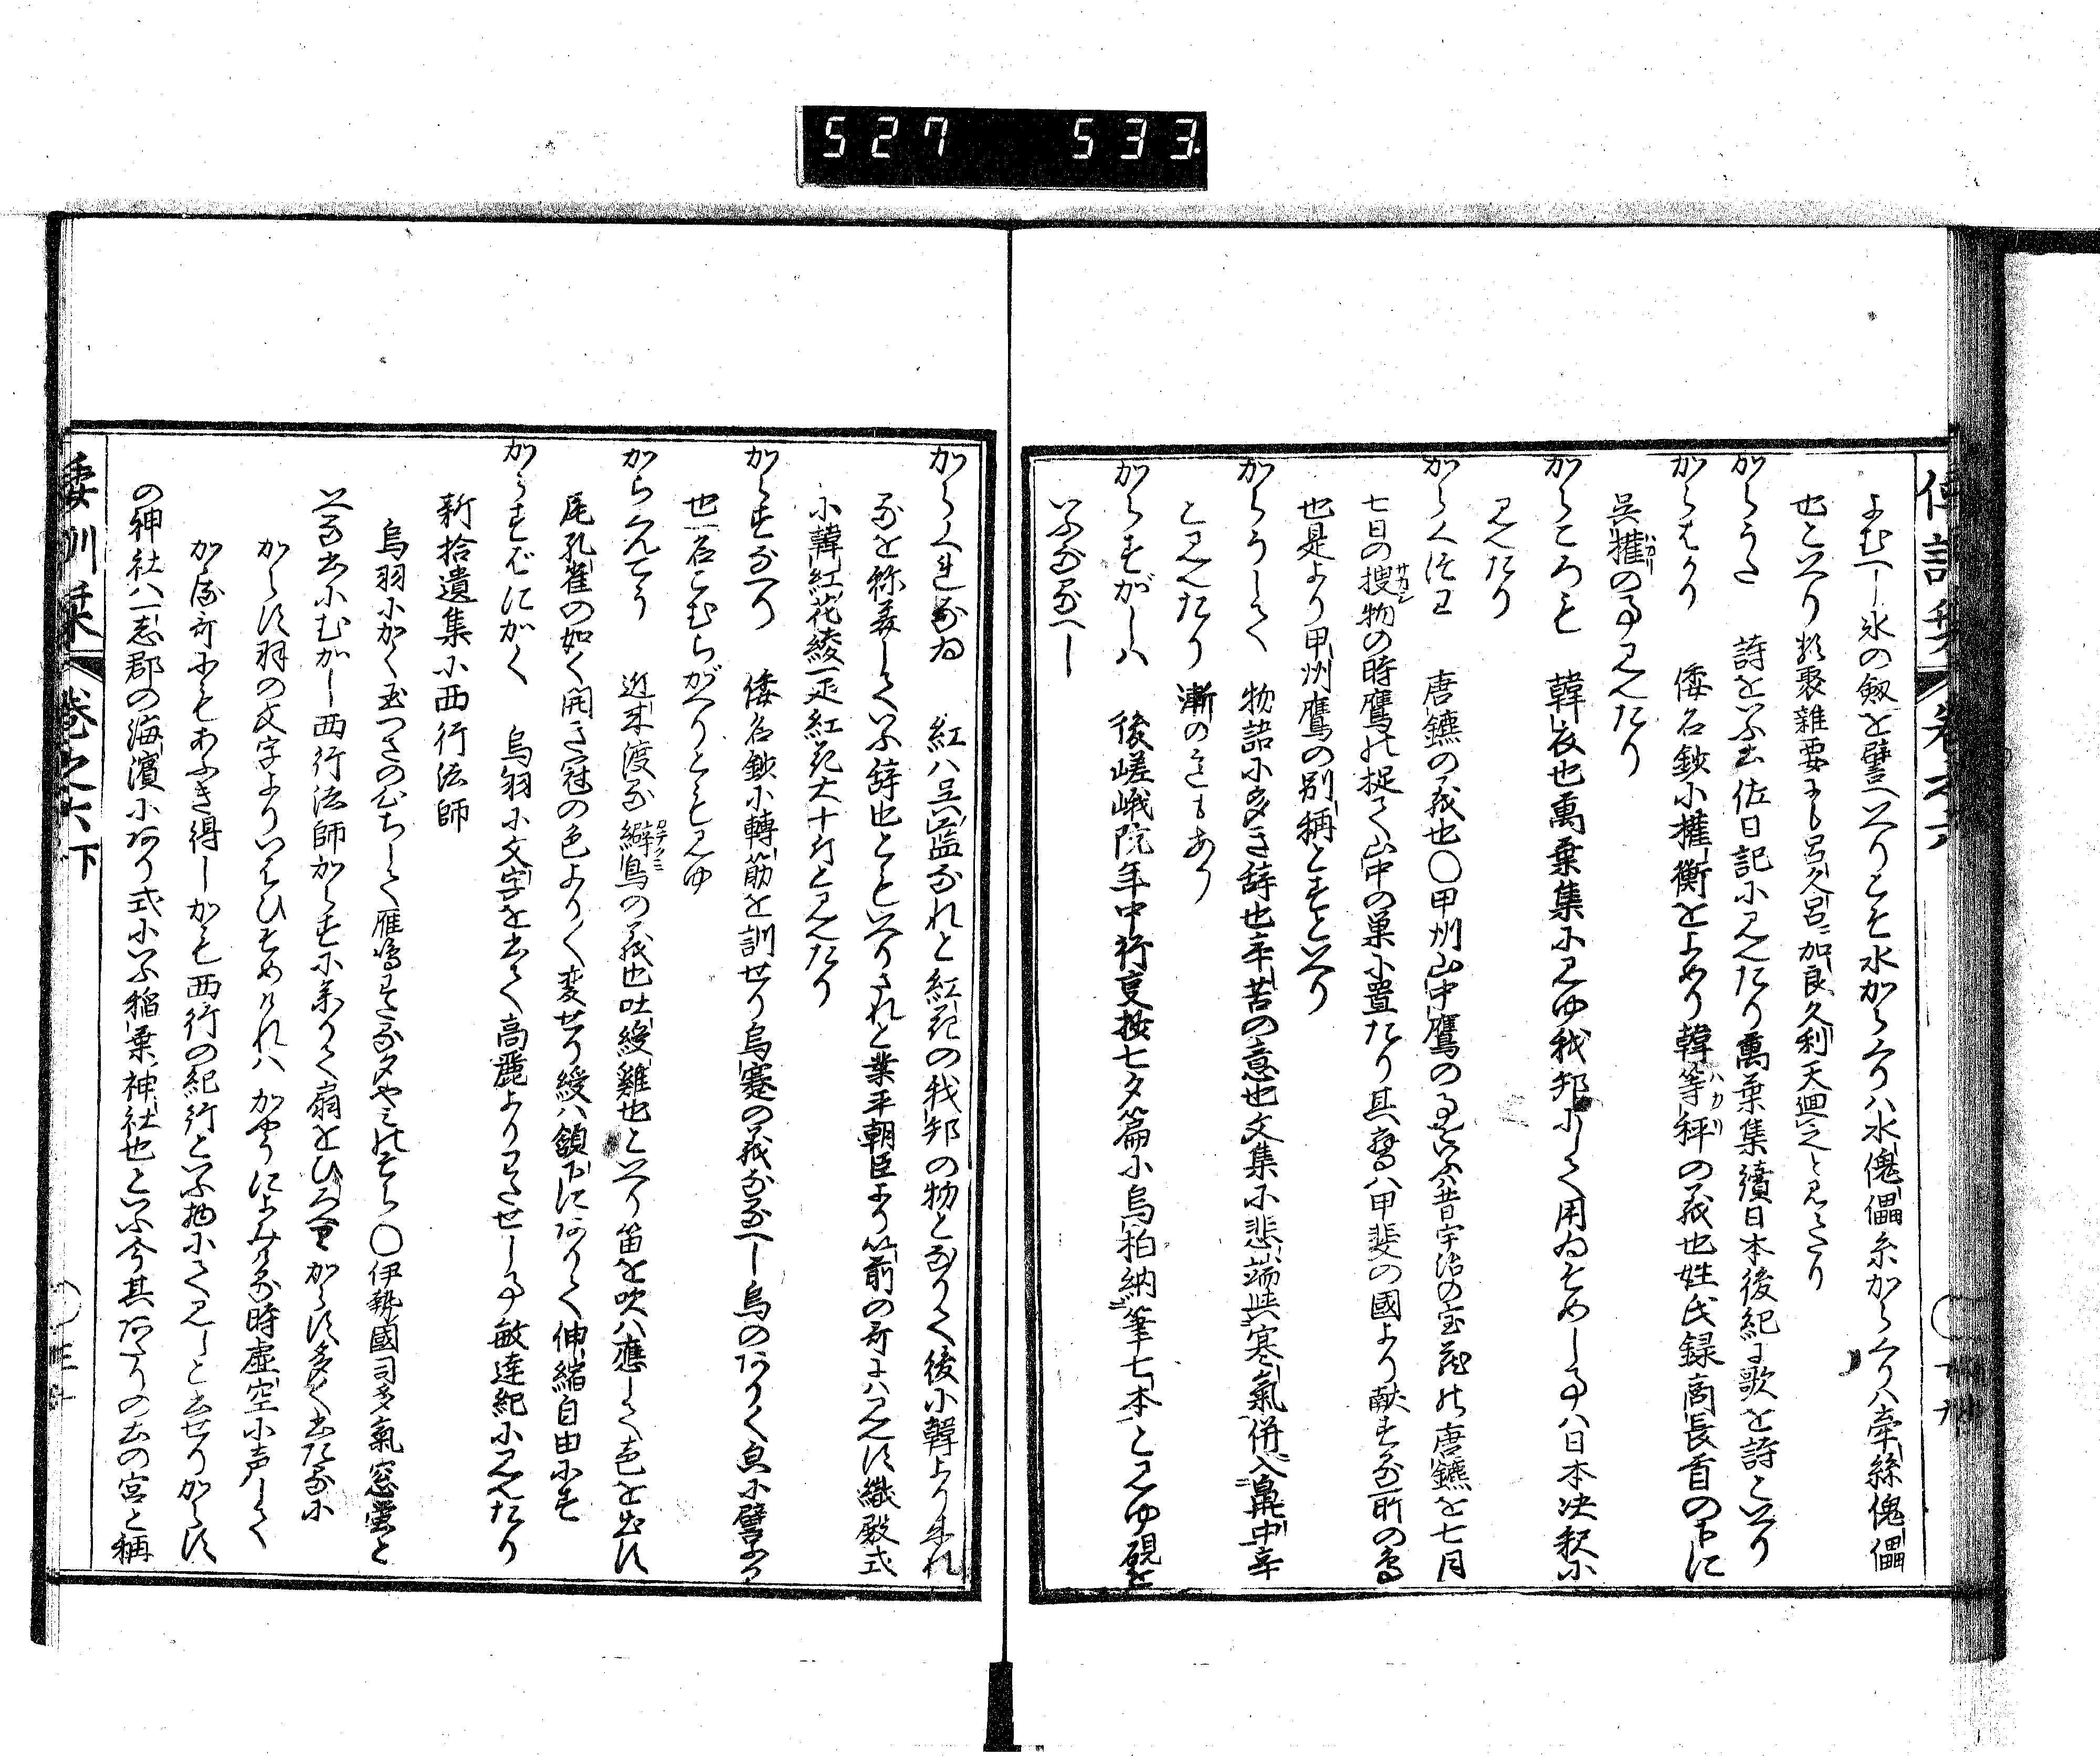 527 533
よむへし氷の劔を譬へいへりとそ水からくりハ水傀儡糸からくりハ牽絲傀儡
也といへり類聚雜要にも呂久呂加良久利天廻之と見えたり
からうた 詩をいふ土佐日記に見えたり萬葉集續日本後紀に歌を詩といへり
からはかり 倭名鈔に權衡をよめり韓等秤の義也姓氏録商長首の下に
呉權の事見えたり
からころも 韓衣也萬葉集に見ゆ我邦にして用ゐそめし事ハ日本决釈に
見えたり
からくつわ 唐鑣の義也〇甲州山中鷹の事をいふ昔宇治の宝蔵の唐鑣を七月
七日の捜物の時鷹の捉て山中の巣に置たり其鷹ハ甲斐の國より献する所の鳥
也是より甲州鷹の別稱とすといへり
からうして 物語に多き辞也辛苦の意也文集に悲端與寒氣併入鼻中辛
と見えたり 漸の意もあり
からすがしハ 後嵯峨院年中行叓按七夕篇に烏柏納筆七本と見ゆ硯を
いふなるへし
からくれなゐ 紅ハ呉藍なれと紅花の我邦の物となりて後に韓より来れ
るを称美していふ辞也ともいへりされと業平朝臣より以前の哥にハ見えす織殿式
に韓紅花綾一疋紅花大十斤と見えたり
からすなへり 倭名鈔に轉筋を訓せり烏蹇の義なるへし烏のありく㒵に譬ふる
也一名こむらがへりとも見ゆ
からくんてう 近来渡る綬鳥の義也吐綬雞也といへり笛を吹ハ應して色を出す
尾孔雀の如く開き冠の色よりより変せり綬ハ頷下にありて伸縮自由にす
からすばにかく 烏羽に文字を書て高麗よりわたせし事敏達紀に見えたり
新拾遺集に西行法師
烏羽にかく玉つさの心ちして雁鳴わたる夕やみのそら〇伊勢國司多氣窓螢と
いふ書にむかし西行法師からすに来りて扇をひろけからす多く書たるに
からす羽の文字よりいはひそめけれハ かやうによみける時虚空に声して
かる哥にもあふき得しかも西行の紀行といふ物にて見しと書せりからす
の神社ハ一志郡の海濱にあり式にいふ稲葉神社也といふ今其あたりの古の宮と稱
倭訓栞 巻之六下